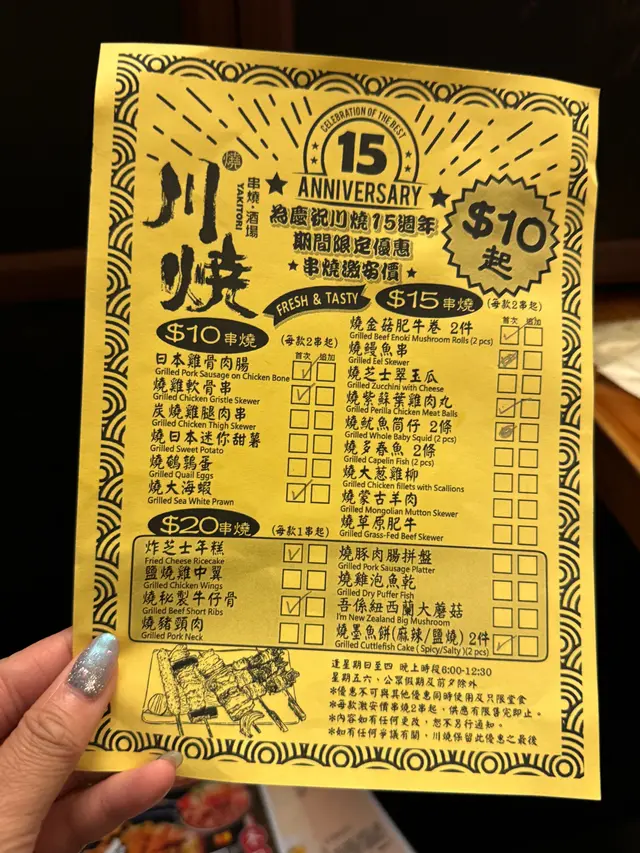 CELEBRATION OF THE BEST
15
ANNIVERSARY
川燒
燒
串燒・酒場
YAKITORI
為慶祝川燒15週年
期間限定優惠
串燒激安價
$10
起
FRESH & TASTY
$10串燒
(每款2串起)
首次 追加
日本雞骨肉腸
Grilled Pork Sausage on Chicken Bone
燒雞軟骨串
Grilled Chicken Gristle Skewer
炭燒雞腿肉串
Grilled Chicken Thigh Skewer
燒日本迷你甜薯
Grilled Sweet Potato
燒鵪鶉蛋
Grilled Quail Eggs
燒大海蝦
Grilled Sea White Prawn
$15串燒
(每款2串起)
首次 追加
燒金菇肥牛卷 2件
Grilled Beef Enoki Mushroom Rolls (2 pcs)
燒鰻魚串
Grilled Eel Skewer
燒芝士翠玉瓜
Grilled Zucchini with Cheese
燒紫蘇葉雞肉丸
Grilled Perilla Chicken Meat Balls
燒魷魚筒仔 2條
Grilled Whole Baby Squid (2 pcs)
燒多春魚 2條
Grilled Capelin Fish (2 pcs)
燒大葱雞柳
Grilled Chicken fillets with Scallions
燒蒙古羊肉
Grilled Mongolian Mutton Skewer
燒草原肥牛
Grilled Grass-Fed Beef Skewer
$20串燒
(每款1串起)
炸芝士年糕
Fried Cheese Ricecake
鹽燒雞中翼
Grilled Chicken Wings
燒秘製牛仔骨
Grilled Beef Short Ribs
燒豬頸肉
Grilled Pork Neck
燒豚肉腸拼盤
Grilled Pork Sausage Platter
燒雞泡魚乾
Grilled Dry Puffer Fish
吾係紐西蘭大蘑菇
I'm New Zealand Big Mushroom
燒墨魚餅(麻辣/鹽燒) 2件
Grilled Cuttlefish Cake ( Spicy/Salty )(2 pcs)
逢星期日至四 晚上時段6:00-12:30
星期五六，公眾假期及前夕除外
*優惠不可與其他優惠同時使用及只限堂食
*每款激安價串燒2串起，供應有限售完即止。
*內容如有任何更改，恕不另行通知。
*如有任何爭議有關，川燒保留此優惠之最後